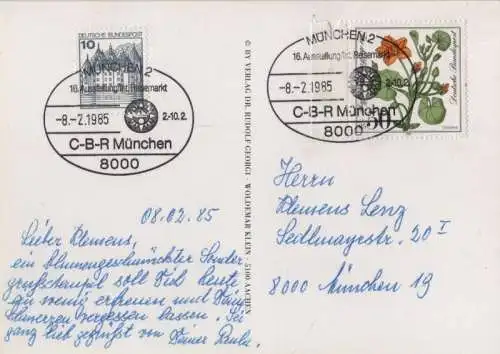 10
DEUTSCHE BUNDESPOST
MÜNCHEN 2
16. Ausstellung f. d. Reisemarkt
-8.-2.1985
2.-10.2.
C-B-R München
8000
MÜNCHEN 2
16. Ausstellung f. d. Reisemarkt
-8.-2.1985
2.-10.2.
C-B-R München
8000
50
Deutsche Bundespost
© BY VERLAG DR. RUDOLF GEORGI · WOLDEMAR KLEIN · 5100 AACHEN
08.02.85
Lieber Klemens,
ein blumengeschmückter Sonder-
grußstempel soll Dich heute
ein wenig erfreuen und Deine
Schmerzen vergessen lassen. Sei
ganz lieb gegrüßt von Deiner Paula.
Herrn
Klemens Lenz
Sedlmayrstr. 20 I
8000 München 19